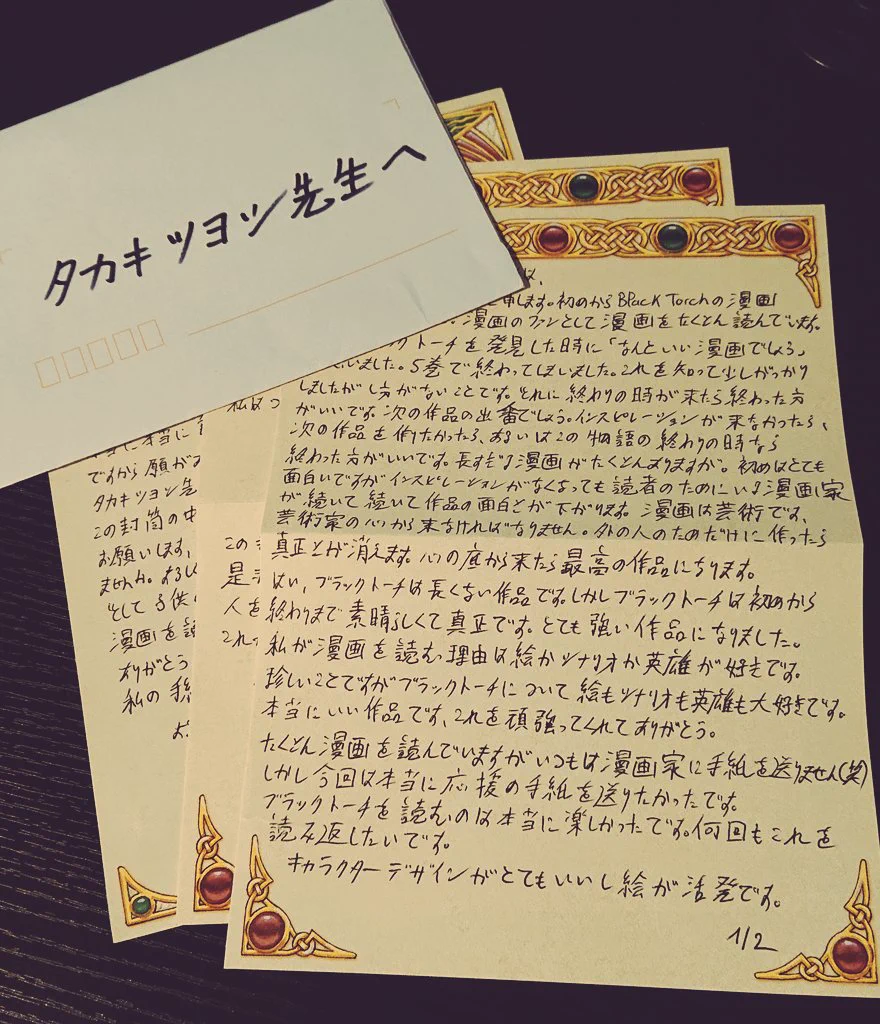 タカキツヨシ先生へ
は、
申します。初めからBlack Torchの漫画
漫画のファンとして漫画をたくさん読んでいます。
ックトーチを発見した時に「なんといい漫画でしょう」
ていました。5巻で終わってしまいました。これを知って少しがっかり
しましたがし方がないことです。それに終わりの時が来たら終わった方
がいいです。次の作品の出番でしょう。インスピレーションが来なかったら、
次の作品を作りたかったら、あるいはこの物語の終わりの時なら
終わった方がいいです。長すぎる漫画がたくさんありますが。初めはとても
面白いですがインスピレーションがなくなっても読者のためにいる漫画家
が続いて続いて作品の面白さが下がります。漫画は芸術です、
芸術家の心から来なければなりません。外の人のためだけに作ったら
真正さが消えます。心の底から来たら最高の作品になります。
はい、ブラックトーチは長くない作品です。しかしブラックトーチは初めから
終わりまで素晴らしくて真正です。とても強い作品になりました。
私が漫画を読む理由は絵かシナリオか英雄が好きです。
珍しいことですがブラックトーチについて絵もシナリオも英雄も大好きです。
本当にいい作品です、これを頑張ってくれてありがとう。
たくさん漫画を読んでいますがいつもは漫画家に手紙を送りません(笑)
しかし今回は本当に応援の手紙を送りたかったです。
ブラックトーチを読むのは本当に楽しかったです。何回もこれを
読み返したいです。
キャラクターデザインがとてもいいし絵が活発です。
1/2
私はつ
この
是
人を
これ
に本当に
ですから願がお
タカキツヨシ先
この封筒の中
お願いします、
ません。あるい
として子供
漫画を読
ありがとう
私の手紙